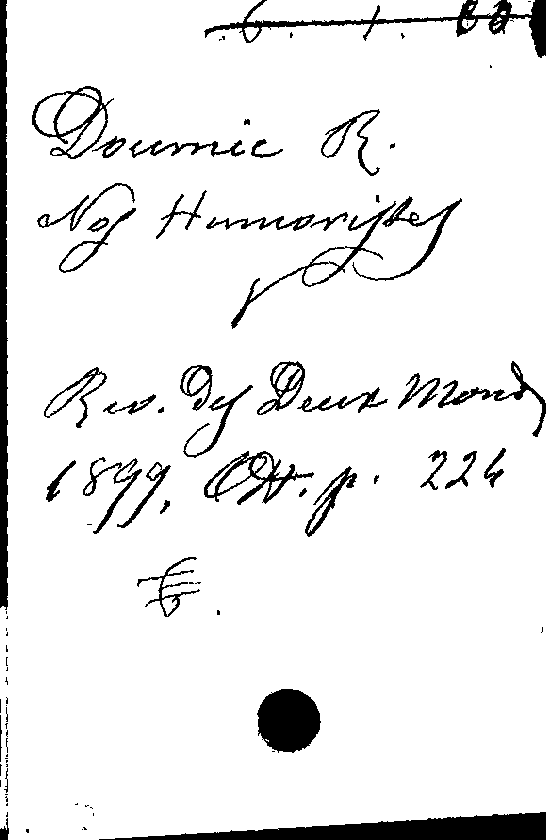 Doumic R.
Nos Humoristes
Rev. des Deux Mond
1899, Okt. p. 226